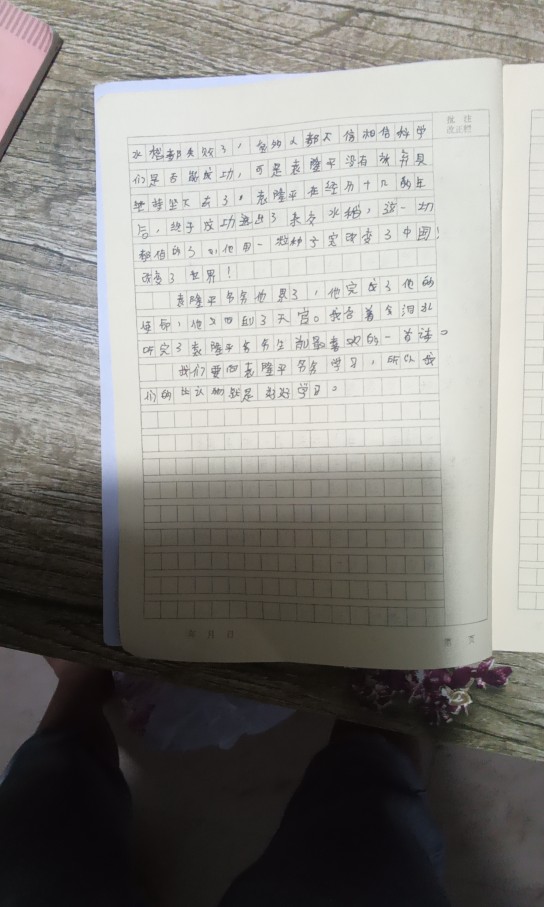 批 注
改正栏
水稻都失败了,的人都不信相信科学
们是否能成功,可是袁隆平没有
袁隆平在经历十几的年
后,终于成功出了杂交水稻,这一切
都值的了,他用一粒种子完改变了中国!
改变了世界!
袁隆平爷爷他累了,他完成了他的
使命,他又回到了天宫。我含着
听完了袁隆平爷爷生前最喜欢的一首诗。
我们要向袁隆平爷爷学习,所以我
们的就是好好学习。
年 月 日
第 页